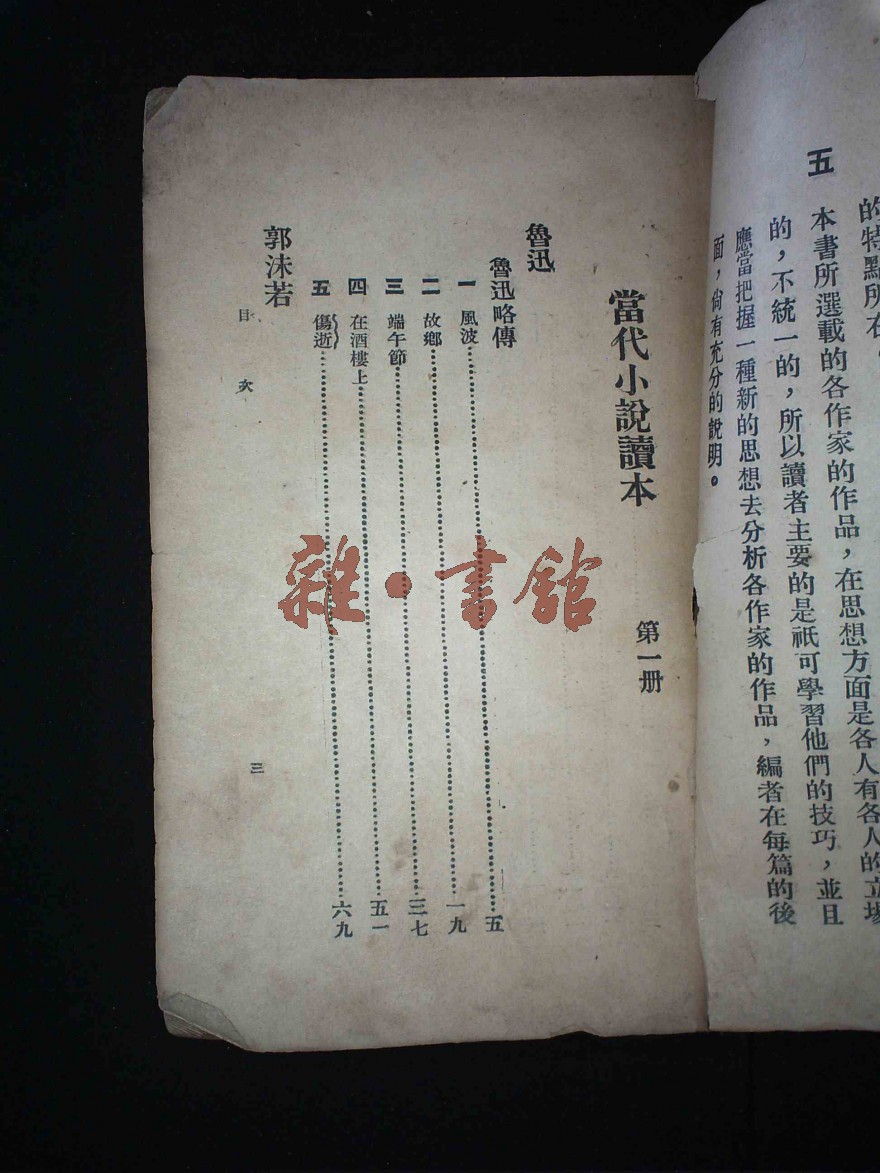 的特點所在。
五
本書所選載的各作家的作品，在思想方面是各人有各人的立場
的，不統一的，所以讀者主要的是祇可學習他們的技巧，並且
應當把握一種新的思想去分析各作家的作品，編者在每篇的後
面，尙有充分的說明。
當代小說讀本 第一册
魯迅
魯迅略傳
一 風波……五
二 故鄉……一九
三 端午節……三七
四 在酒樓上……五一
五 傷逝……六九
郭沫若
目次 三
雜·書館